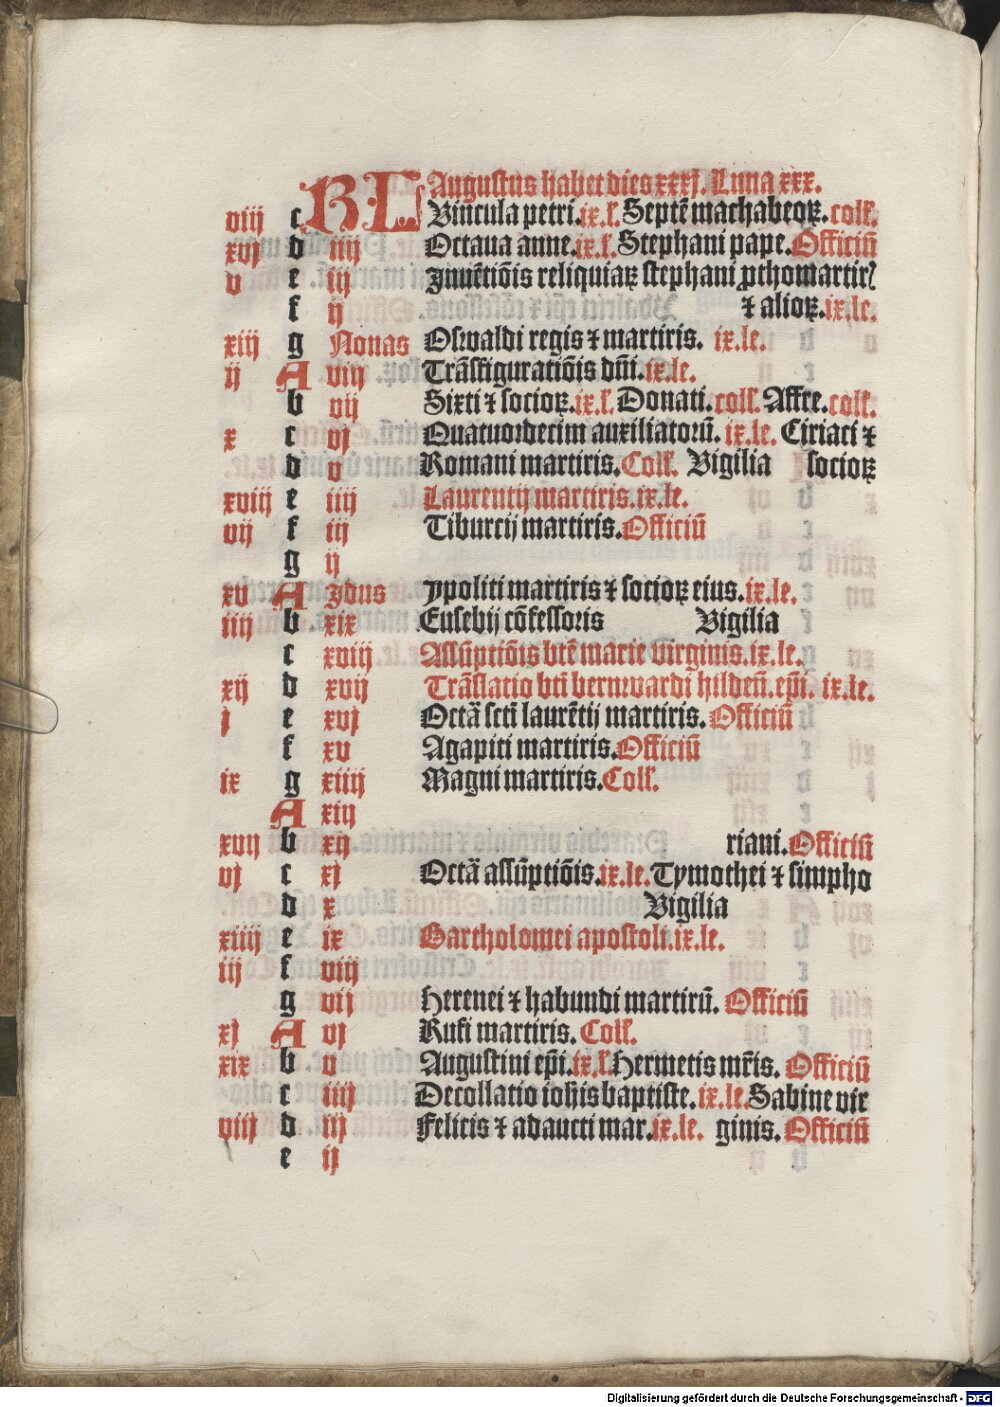 KL Augustus habet dies xxxj. Luna xxx.
viij c Vincula petri. ix.l. Septē machabeoꝝ. coll.
xvj d iiij Octaua anne. ix.l. Stephani pape. Officiū
v e iij Inuētiōis reliquiaꝝ stephani ꝓthomartirꝭ
f ij ⁊ alioꝝ. ix.le.
xiij g Nonas Oswaldi regis ⁊ martiris. ix.le.
ij A viij Trāsfiguratiōis dñi. ix.le.
b vij Sixti ⁊ socioꝝ. ix.l. Donati. coll. Affre. coll.
x c vj Quatuordecim auxiliatorū. ix.le. Ciriaci ⁊
d v Romani martiris. Coll. Vigilia socioꝝ
xviij e iiij Laurentij martiris. ix.le.
vij f iij Tiburcij martiris. Officiū
g ij
xv A Idus Ypoliti martiris ⁊ socioꝝ eius. ix.le.
iiij b xix Eusebij cōfessoris Vigilia
c xviij Assūptiōis btē marie virginis. ix.le.
xij d xvij Trāslatio bti bernwardi hildeñ. epi. ix.le.
j e xvj Octā scti laurētij martiris. Officiū
f xv Agapiti martiris. Officiū
ix g xiiij Magni martiris. Coll.
A xiij
xvij b xij riani. Officiū
vj c xj Octā assūptiōis. ix.le. Tymothei ⁊ simpho
d x Vigilia
xiiij e ix Bartholomei apostoli. ix.le.
iij f viij
g vij Herenei ⁊ habundi martirū. Officiū
xj A vj Rufi martiris. Coll.
xix b v Augustini epi. ix.l. Hermetis mr̄is. Officiū
c iiij Decollatio iohis baptiste. ix.le. Sabine vir
viij d iij Felicis ⁊ adaucti mar. ix.le. ginis. Officiū
e ij
Digitalisierung gefördert durch die Deutsche Forschungsgemeinschaft - DFG